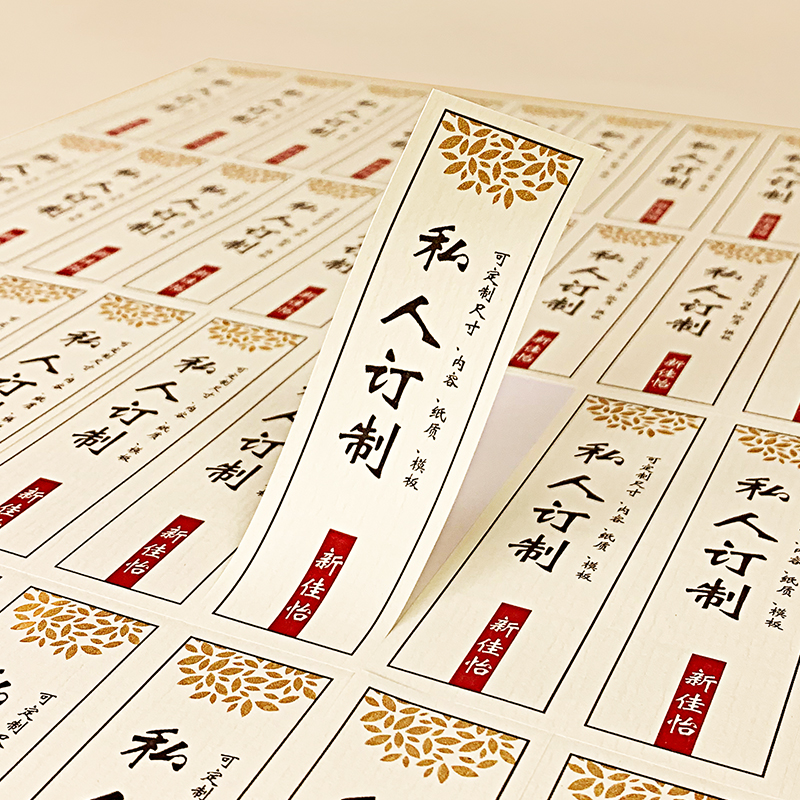 私人订制
可定制尺寸、内容、纸质、模板
新佳怡